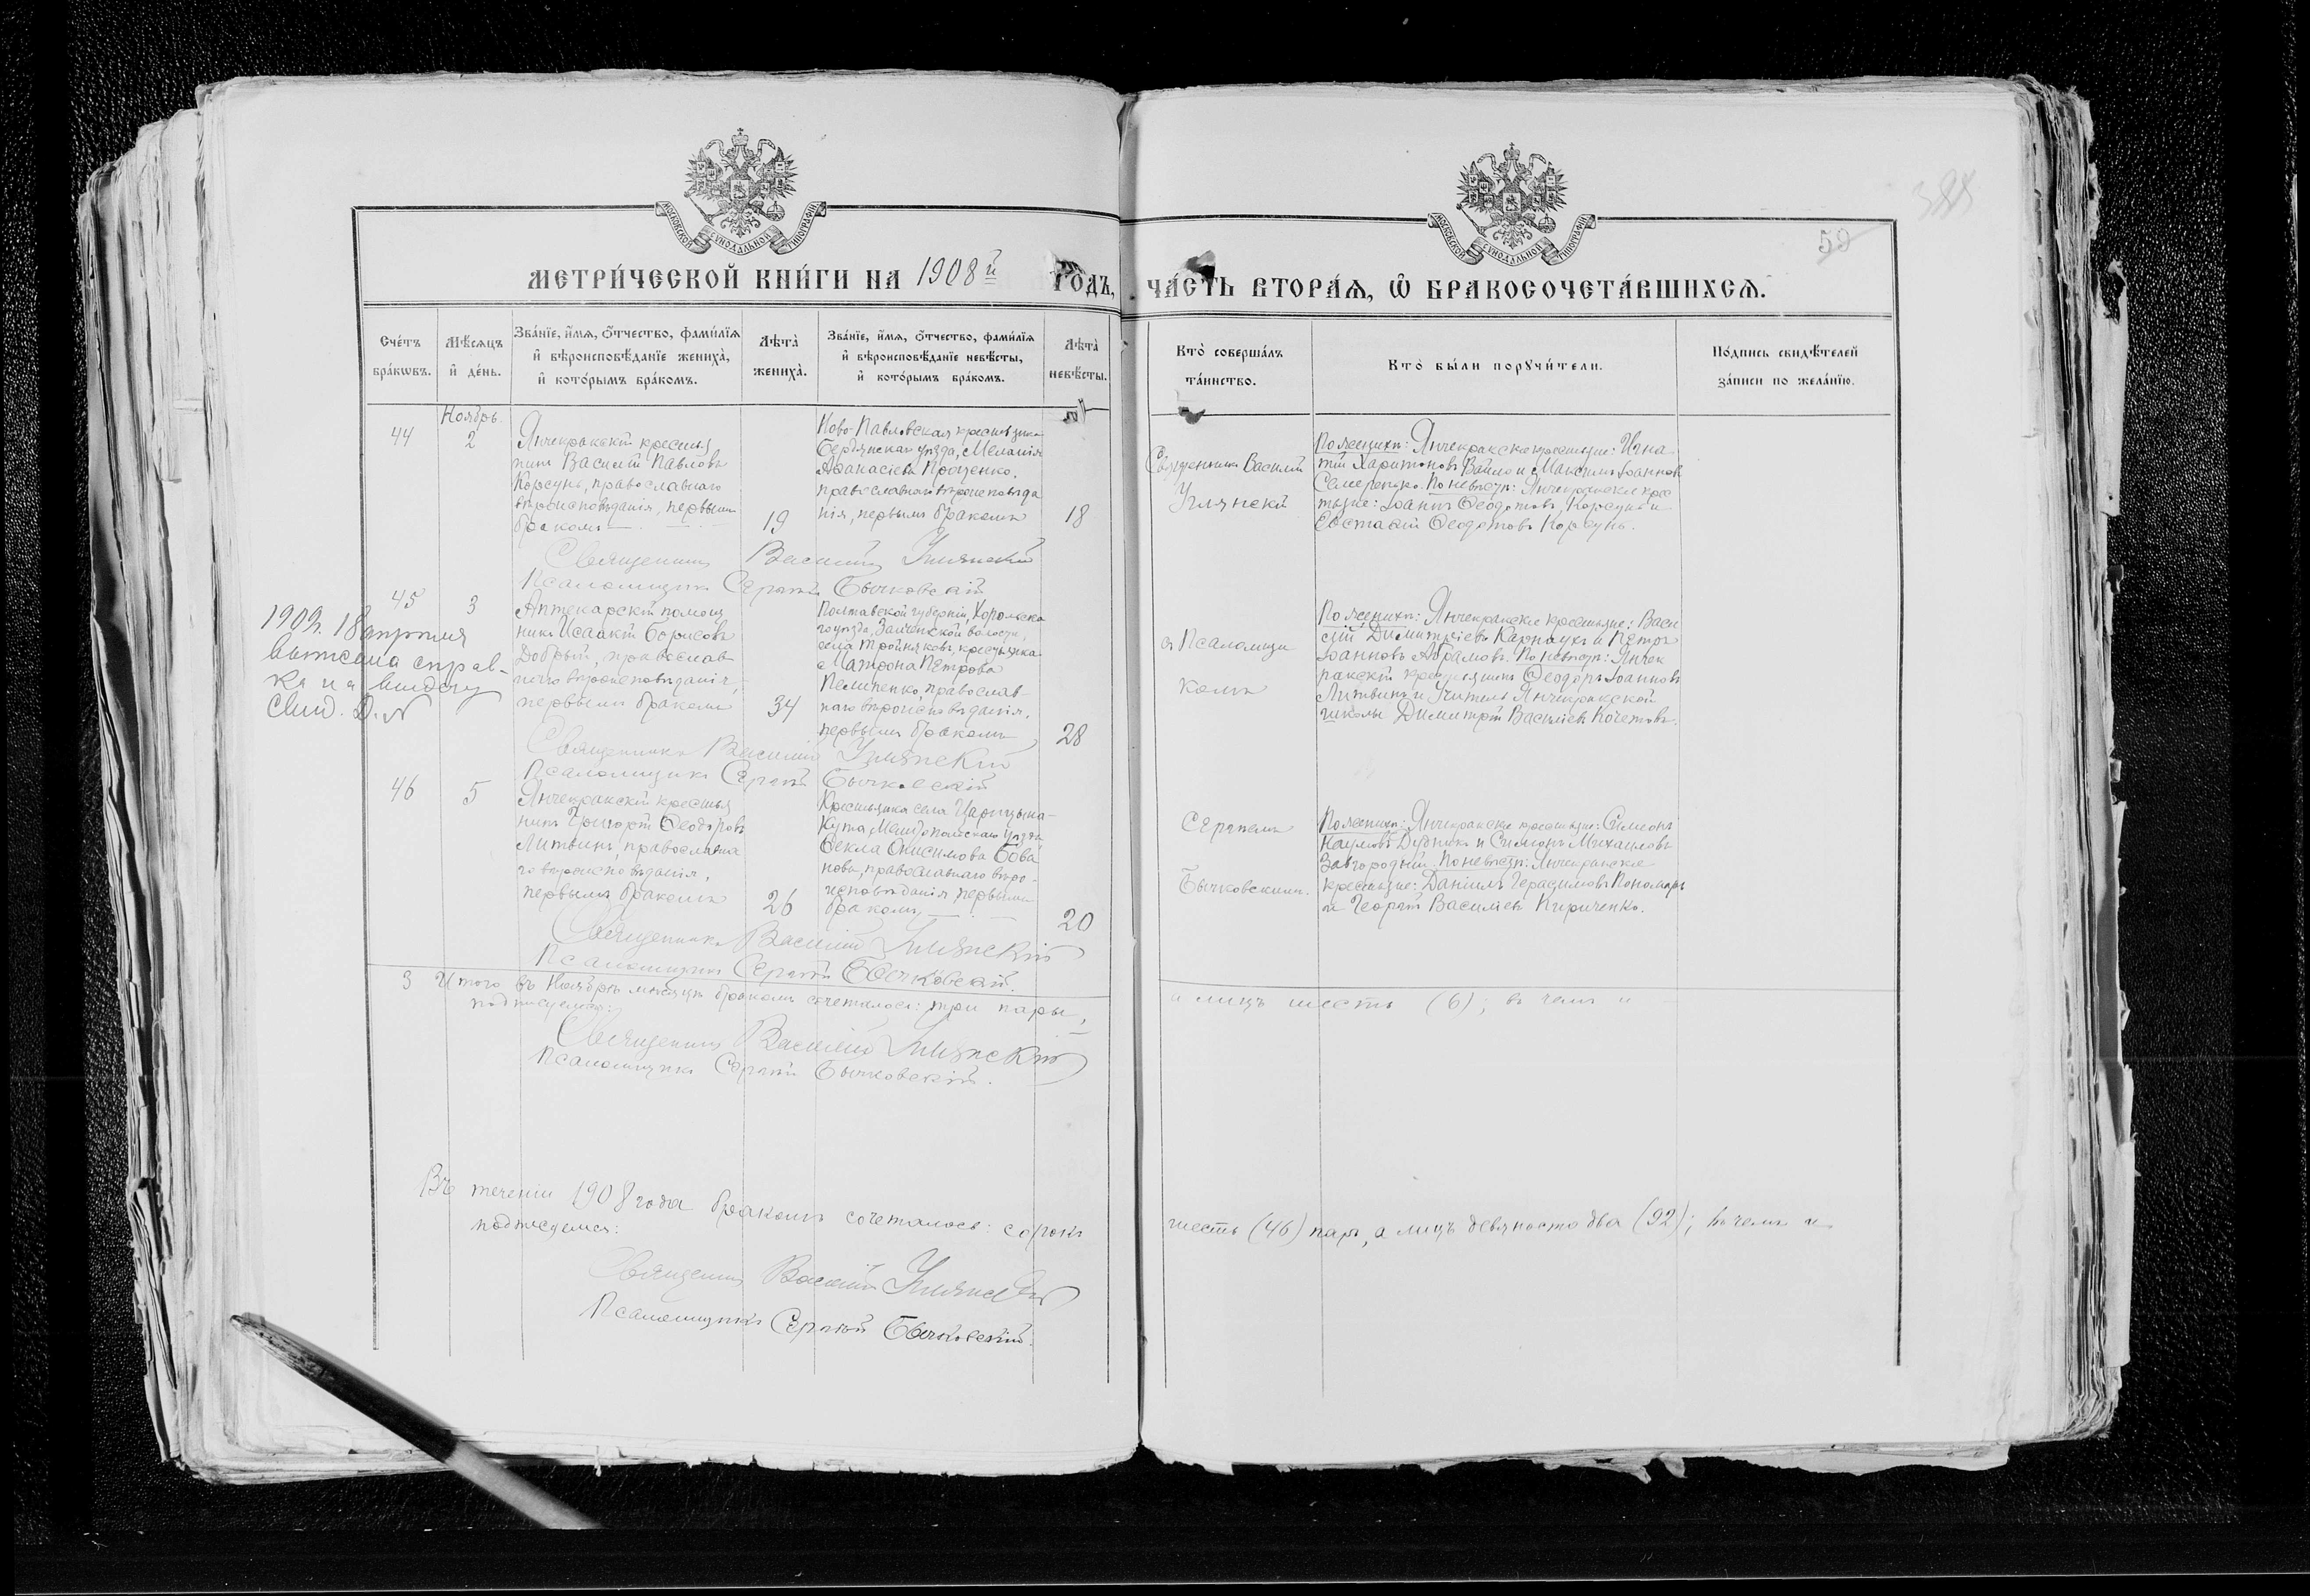 МОСКОВСКОЙ СѴНОДАЛЬНОЙ ТИПОГРАФІИ
МОСКОВСКОЙ СѴНОДАЛЬНОЙ ТИПОГРАФІИ
50
МЕТРИ́ЧЕСКОЙ КНИ́ГИ НА 1908й ГО́ДЪ, ЧА́СТЬ ВТОРА́Ѧ, Ѽ БРАКОСОЧЕТА́ВШИХСѦ.
Сче́тъ бра́кѡвъ.
Мѣ́сяцъ и де́нь.
Зва́нїе, и́мѧ, ѻ́тчество, фами́лїѧ
и вѣроисповѣ́данїе жениха̀,
и кото́рымъ бра́комъ.
Лѣта̀ жениха̀.
Зва́нїе, и́мѧ, ѻ́тчество, фами́лїѧ
и вѣроисповѣ́данїе невѣ́сты,
и кото́рымъ бра́комъ.
Лѣта̀ невѣ́сты.
Кто̀ соверша́лъ та́инство.
Кто̀ бы́ли порꙋчи́тели.
По́дпись свидѣ́телей за́писи по жела́нїю.
44
Ноябрь
2
Янчекракскій крестья
нинъ Василій Павловъ
Корсунь, православнаго
вѣроисповѣданія, первымъ
бракомъ
19
Ново-Павловская крестьянка
Бердянскаго уѣзда, Меланія
Аѳанасіева Проценко,
православнаго вѣроисповѣда
нія, первымъ бракомъ
18
Священникъ Василій
Улянскій
По женихѣ: Янчекракскіе крестьяне: Игна
тій Харитоновъ Вайло и Максимъ Іоанновъ
Семеренько. По невѣстѣ: Янчекракскіе кре
стьяне: Іоаннъ Ѳеодотовъ Корсунь и
Евстаѳій Ѳеодотовъ Корсунь.
Священникъ Василій Улянскій
Псаломщикъ Сергій Бычковскій
1909. 18 апреля
выписана справ-
ка на выдачу
свид.
45
3
Аптекарскій помощ
никъ Исаакій Борисовъ
Добрый, православ
наго вѣроисповѣданія,
первымъ бракомъ
34
Полтавской губерніи, Хорольска
го уѣзда, волости,
села крестьянка
Матрона Петрова
Пелипенко, православ-
наго вѣроисповѣданія,
первымъ бракомъ
28
съ Псаломщи
комъ
По женихѣ: Янчекракскіе крестьяне: Васи
лій Димитріевъ Карнаухъ и Петръ
Іоанновъ Абрамовъ. По невѣстѣ: Янчек
ракскій крестьянинъ Ѳеодоръ Іоанновъ
Литвинъ и Учитель Янчекракской
школы Димитрій Василіевъ Кочетовъ.
Священникъ Василій Улянскій
Псаломщикъ Сергій Бычковскій
46
5
Янчекракскій крестья
нинъ Григорій Ѳеодоровъ
Литвинъ, православна
го вѣроисповѣданія,
первымъ бракомъ
26
Крестьянка села Царицына-
Кута, Мелитопольскаго уѣзда
Ѳекла Онисимова Бова
нова, православнаго вѣро-
исповѣданія, первымъ
бракомъ
20
Сергіемъ
Бычковскимъ.
По женихѣ: Янчекракскіе крестьяне: Симеонъ
Наумовъ Дудникъ и Симеонъ Михаиловъ
Завгородній. По невѣстѣ: Янчекракскіе
крестьяне: Даніилъ Герасимовъ Пономарь
и Георгій Василіевъ Кириченко.
Священникъ Василій Улянскій
Псаломщикъ Сергій Бычковскій.
3 Итого въ Ноябрѣ мѣсяцѣ бракомъ сочеталось: три пары, а лицъ шесть (6); въ чемъ и
подписуемся:
Священникъ Василій Улянскій
Псаломщикъ Сергій Бычковскій.
Въ теченіи 1908 года бракомъ сочеталось: сорокъ шесть (46) паръ, а лицъ девяносто два (92); въ чемъ и
подписуемся:
Священникъ Василій Улянскій
Псаломщикъ Сергій Бычковскій.